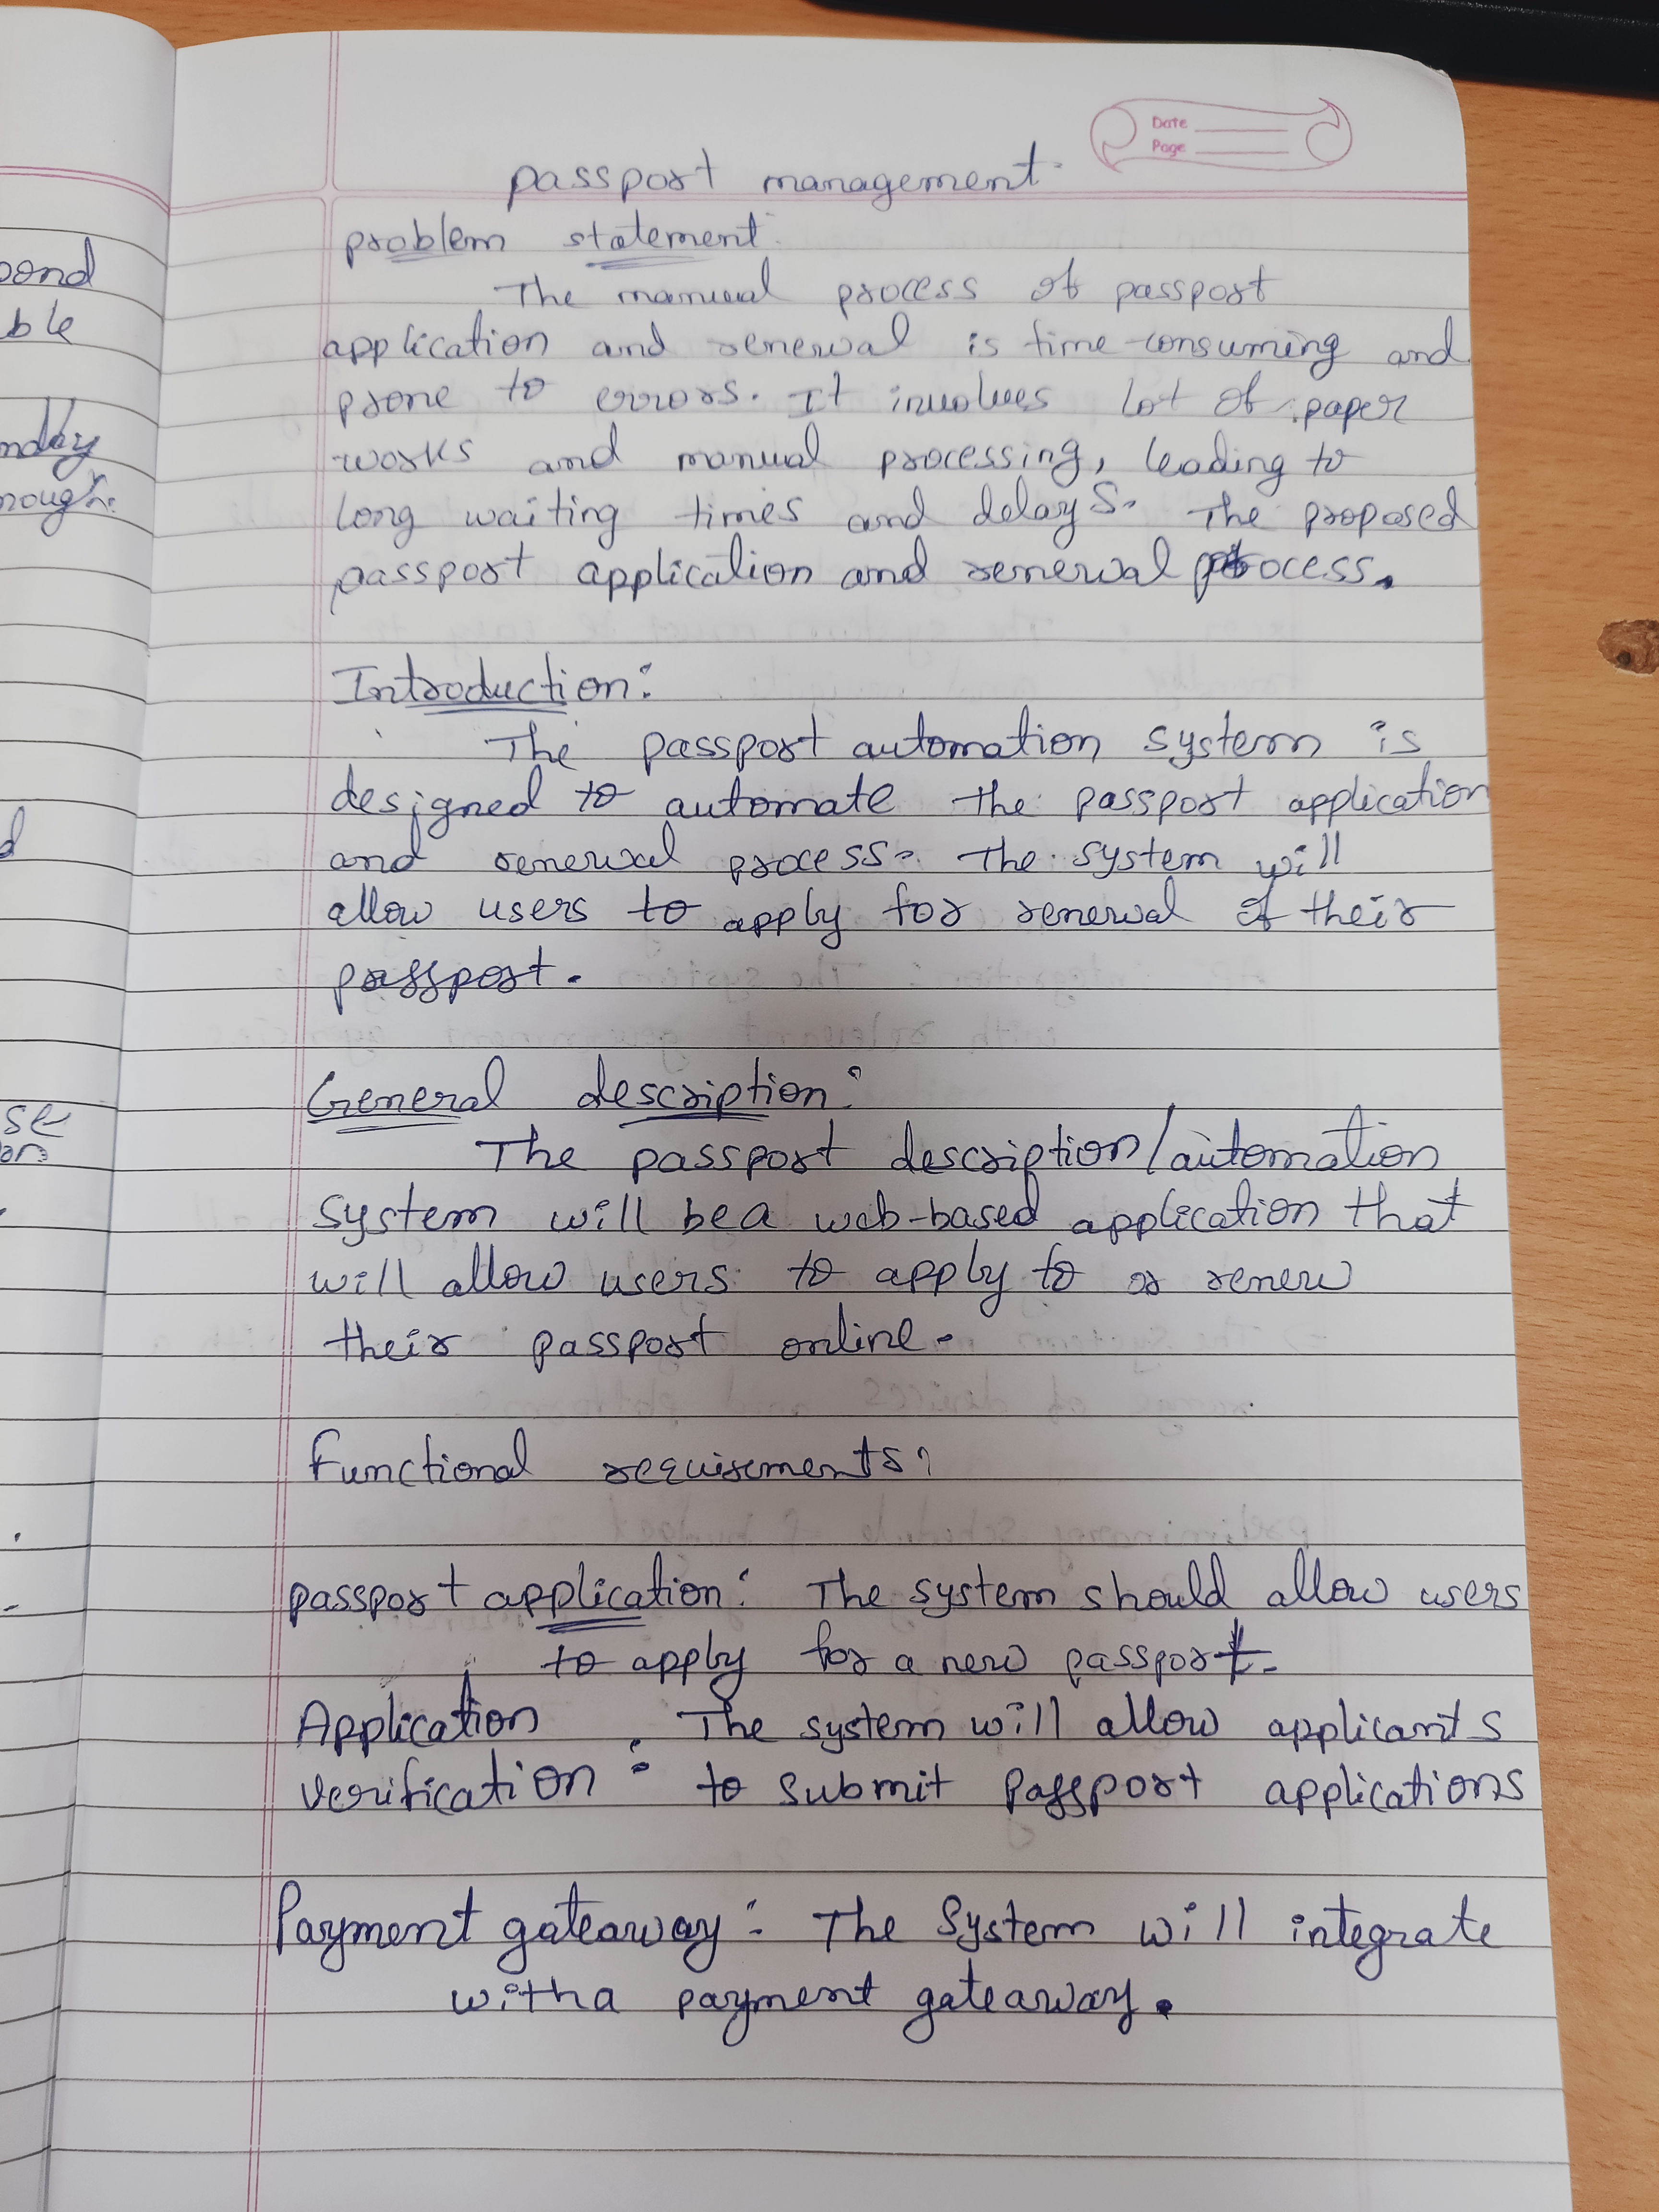 Date
Page
passport management
problem statement:
The manual process of passport
application and renewal is time-consuming and
prone to errors. It involves lot of paper
works and manual processing, leading to
long waiting times and delays. The proposed
passport application and renewal process.
Introduction:
The passport automation system is
designed to automate the passport application
and renewal process. The system will
allow users to apply for renewal of their
passport.
General description:
The passport description/automation
system will be a web-based application that
will allow users to apply to or renew
their passport online.
Functional requirements:
passport application: The system should allow users
to apply for a new passport.
Application The system will allow applicants
verification: to submit passport applications
Payment gateaway: The System will integrate
with a payment gateaway.